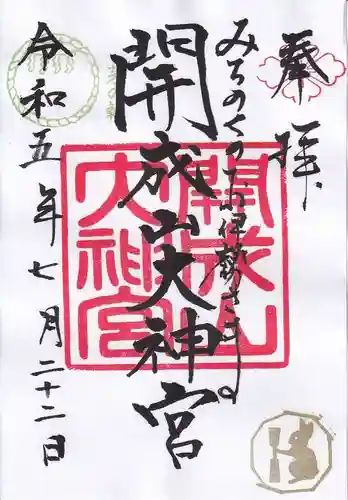 奉拝
みちのくのお伊勢さま
開成山大神宮
令和五年七月二十二日
開成山
大神宮